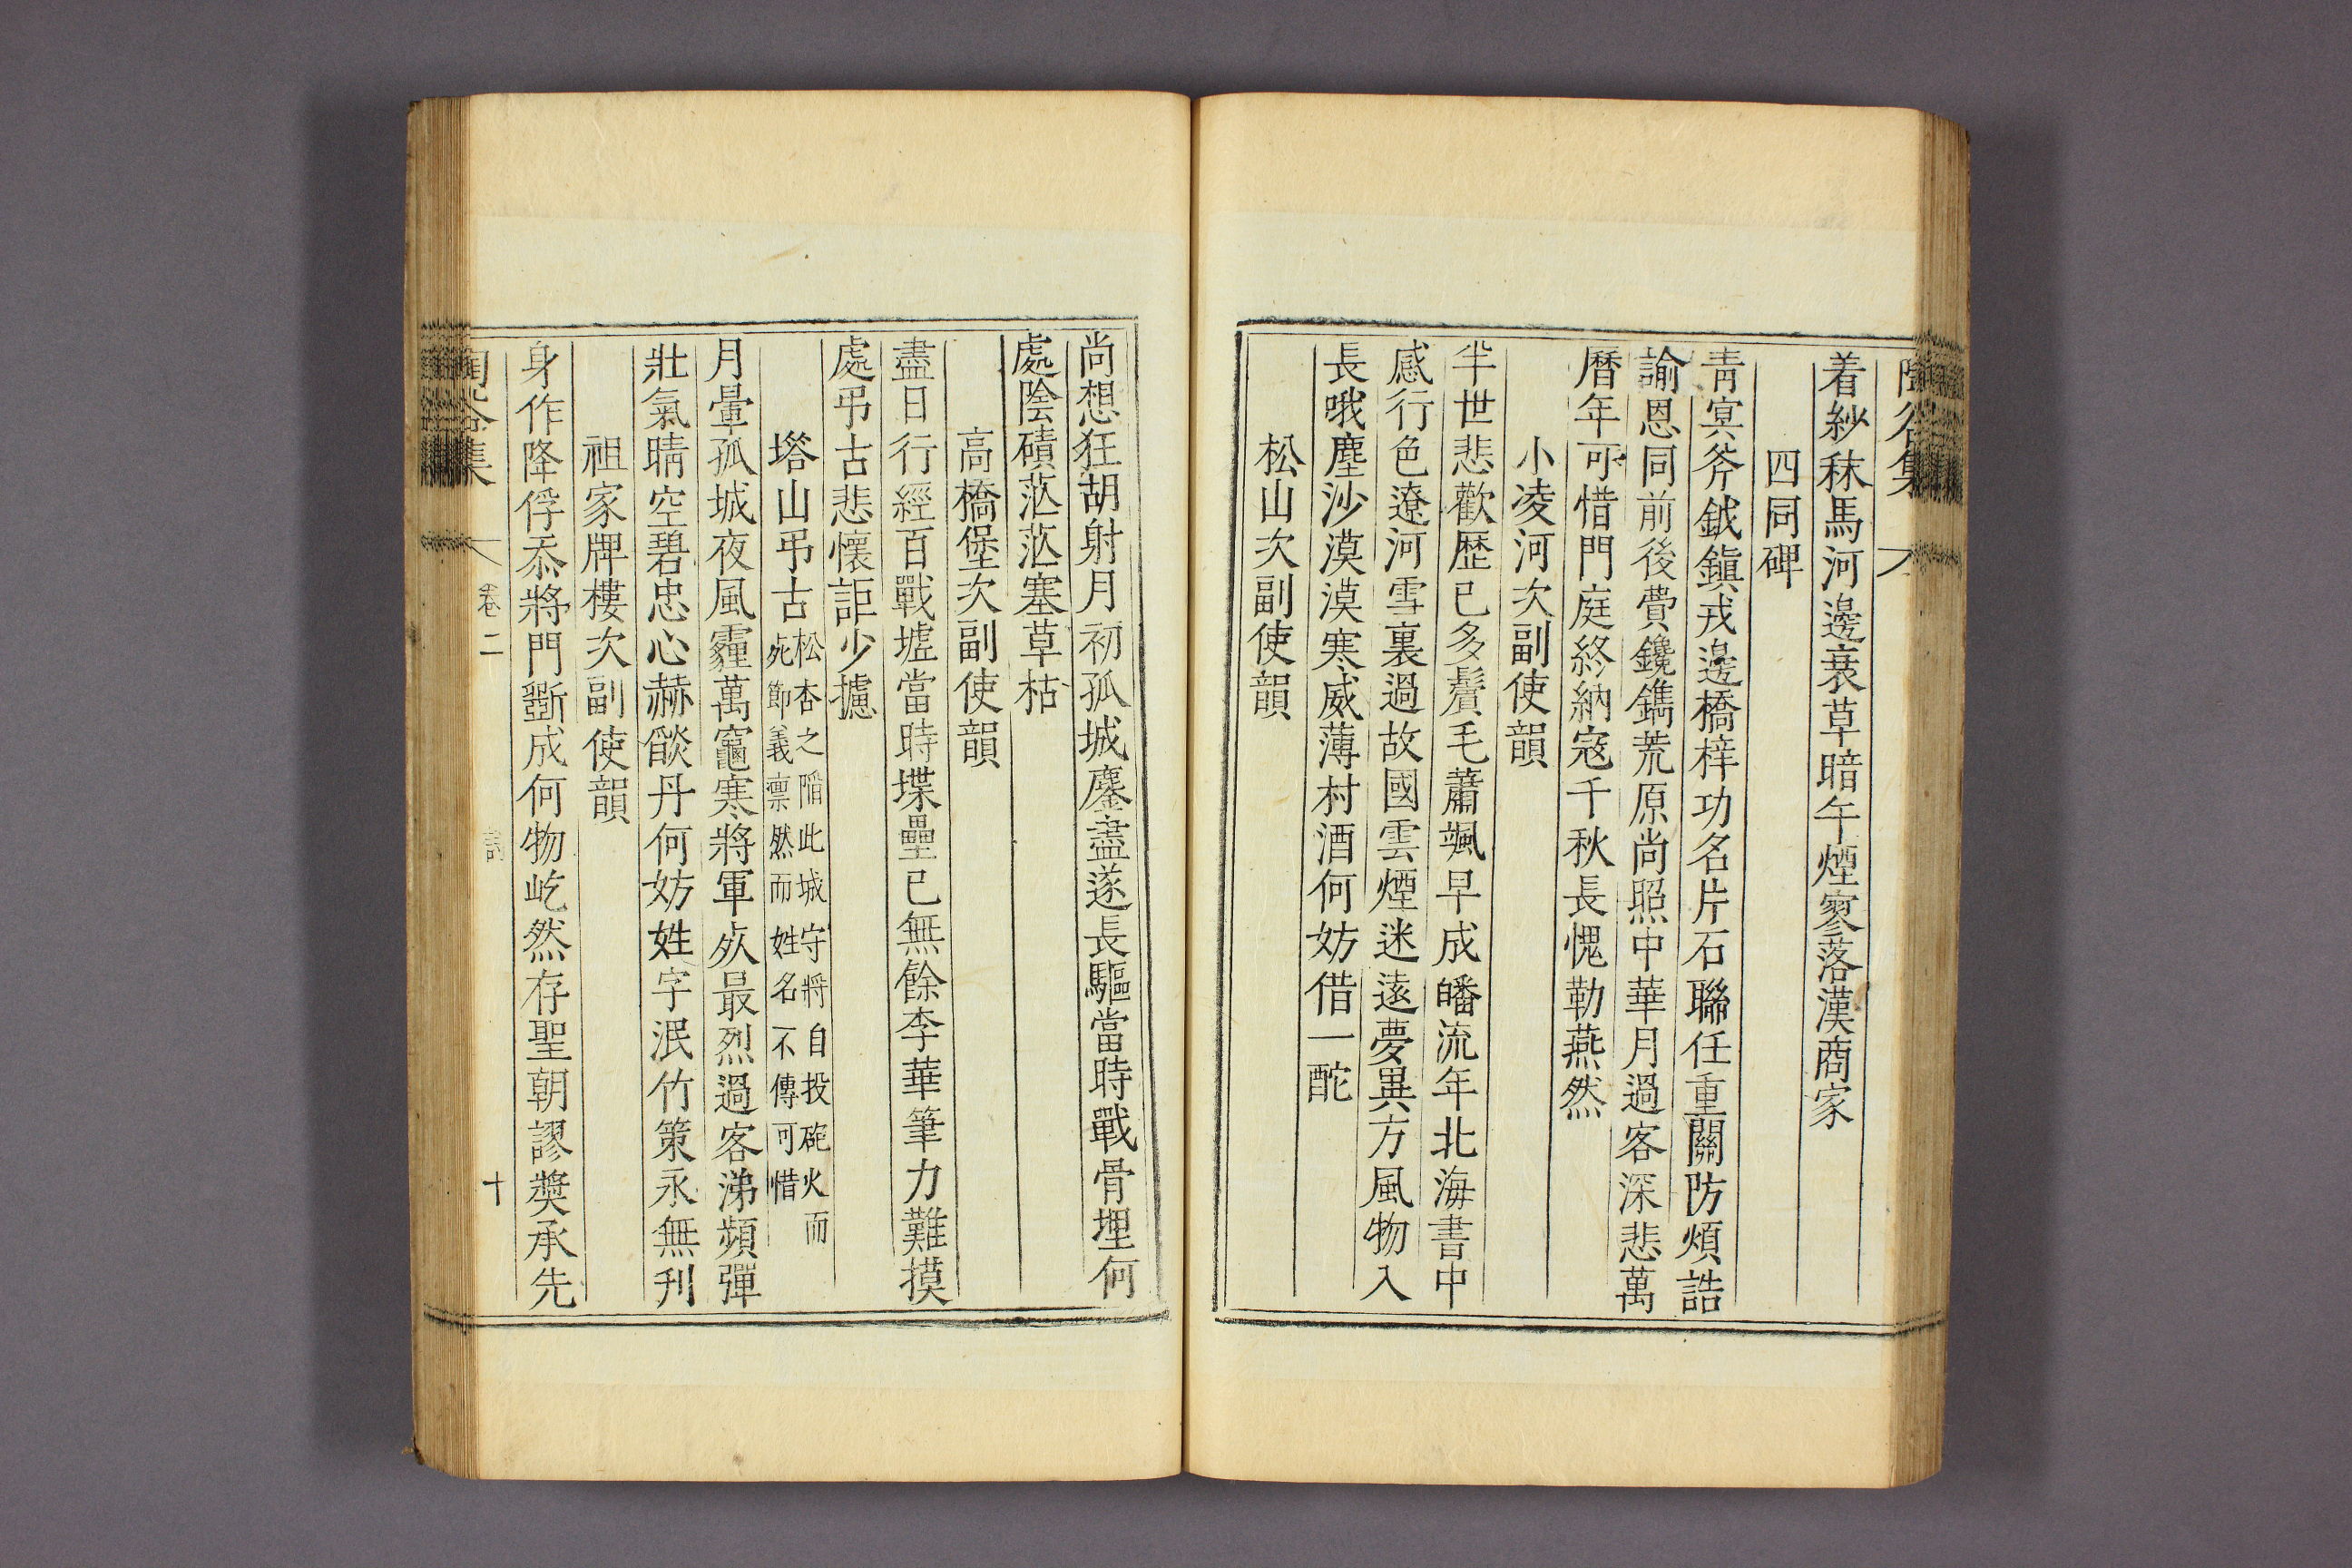 着紗秣馬河邊衰草暗午煙寥落漢商家
四同碑
靑冥斧鉞鎭戎邊橋梓功名片石聯任重關防煩誥
諭恩同前後費鑱鐫荒原尚照中華月過客深悲萬
曆年可惜門庭終納寇千秋長愧勒燕然
小凌河次副使韻
半世悲歡歷已多鬢毛蕭颯早成皤流年北海書中
感行色遼河雪裏過故國雲煙迷遠夢異方風物入
長哦塵沙漠漠寒威薄村酒何妨借一酡
松山次副使韻
尚想狂胡射月初孤城鏖盡遂長驅當時戰骨埋何
處陰磧茫茫塞草枯
高橋堡次副使韻
盡日行經百戰墟當時堞壘已無餘李華筆力難摸
處弔古悲懷詎少攄
塔山弔古
松杏之陷此城守將自投砲火而
死節義凛然而姓名不傳可惜
月暈孤城夜風霾萬竈寒將軍死最烈過客涕頻彈
壯氣晴空碧忠心赫燄丹何妨姓字泯竹策永無刋
祖家牌樓次副使韻
身作降俘忝將門斲成何物屹然存聖朝謬奬承先
集 卷二 詩 十